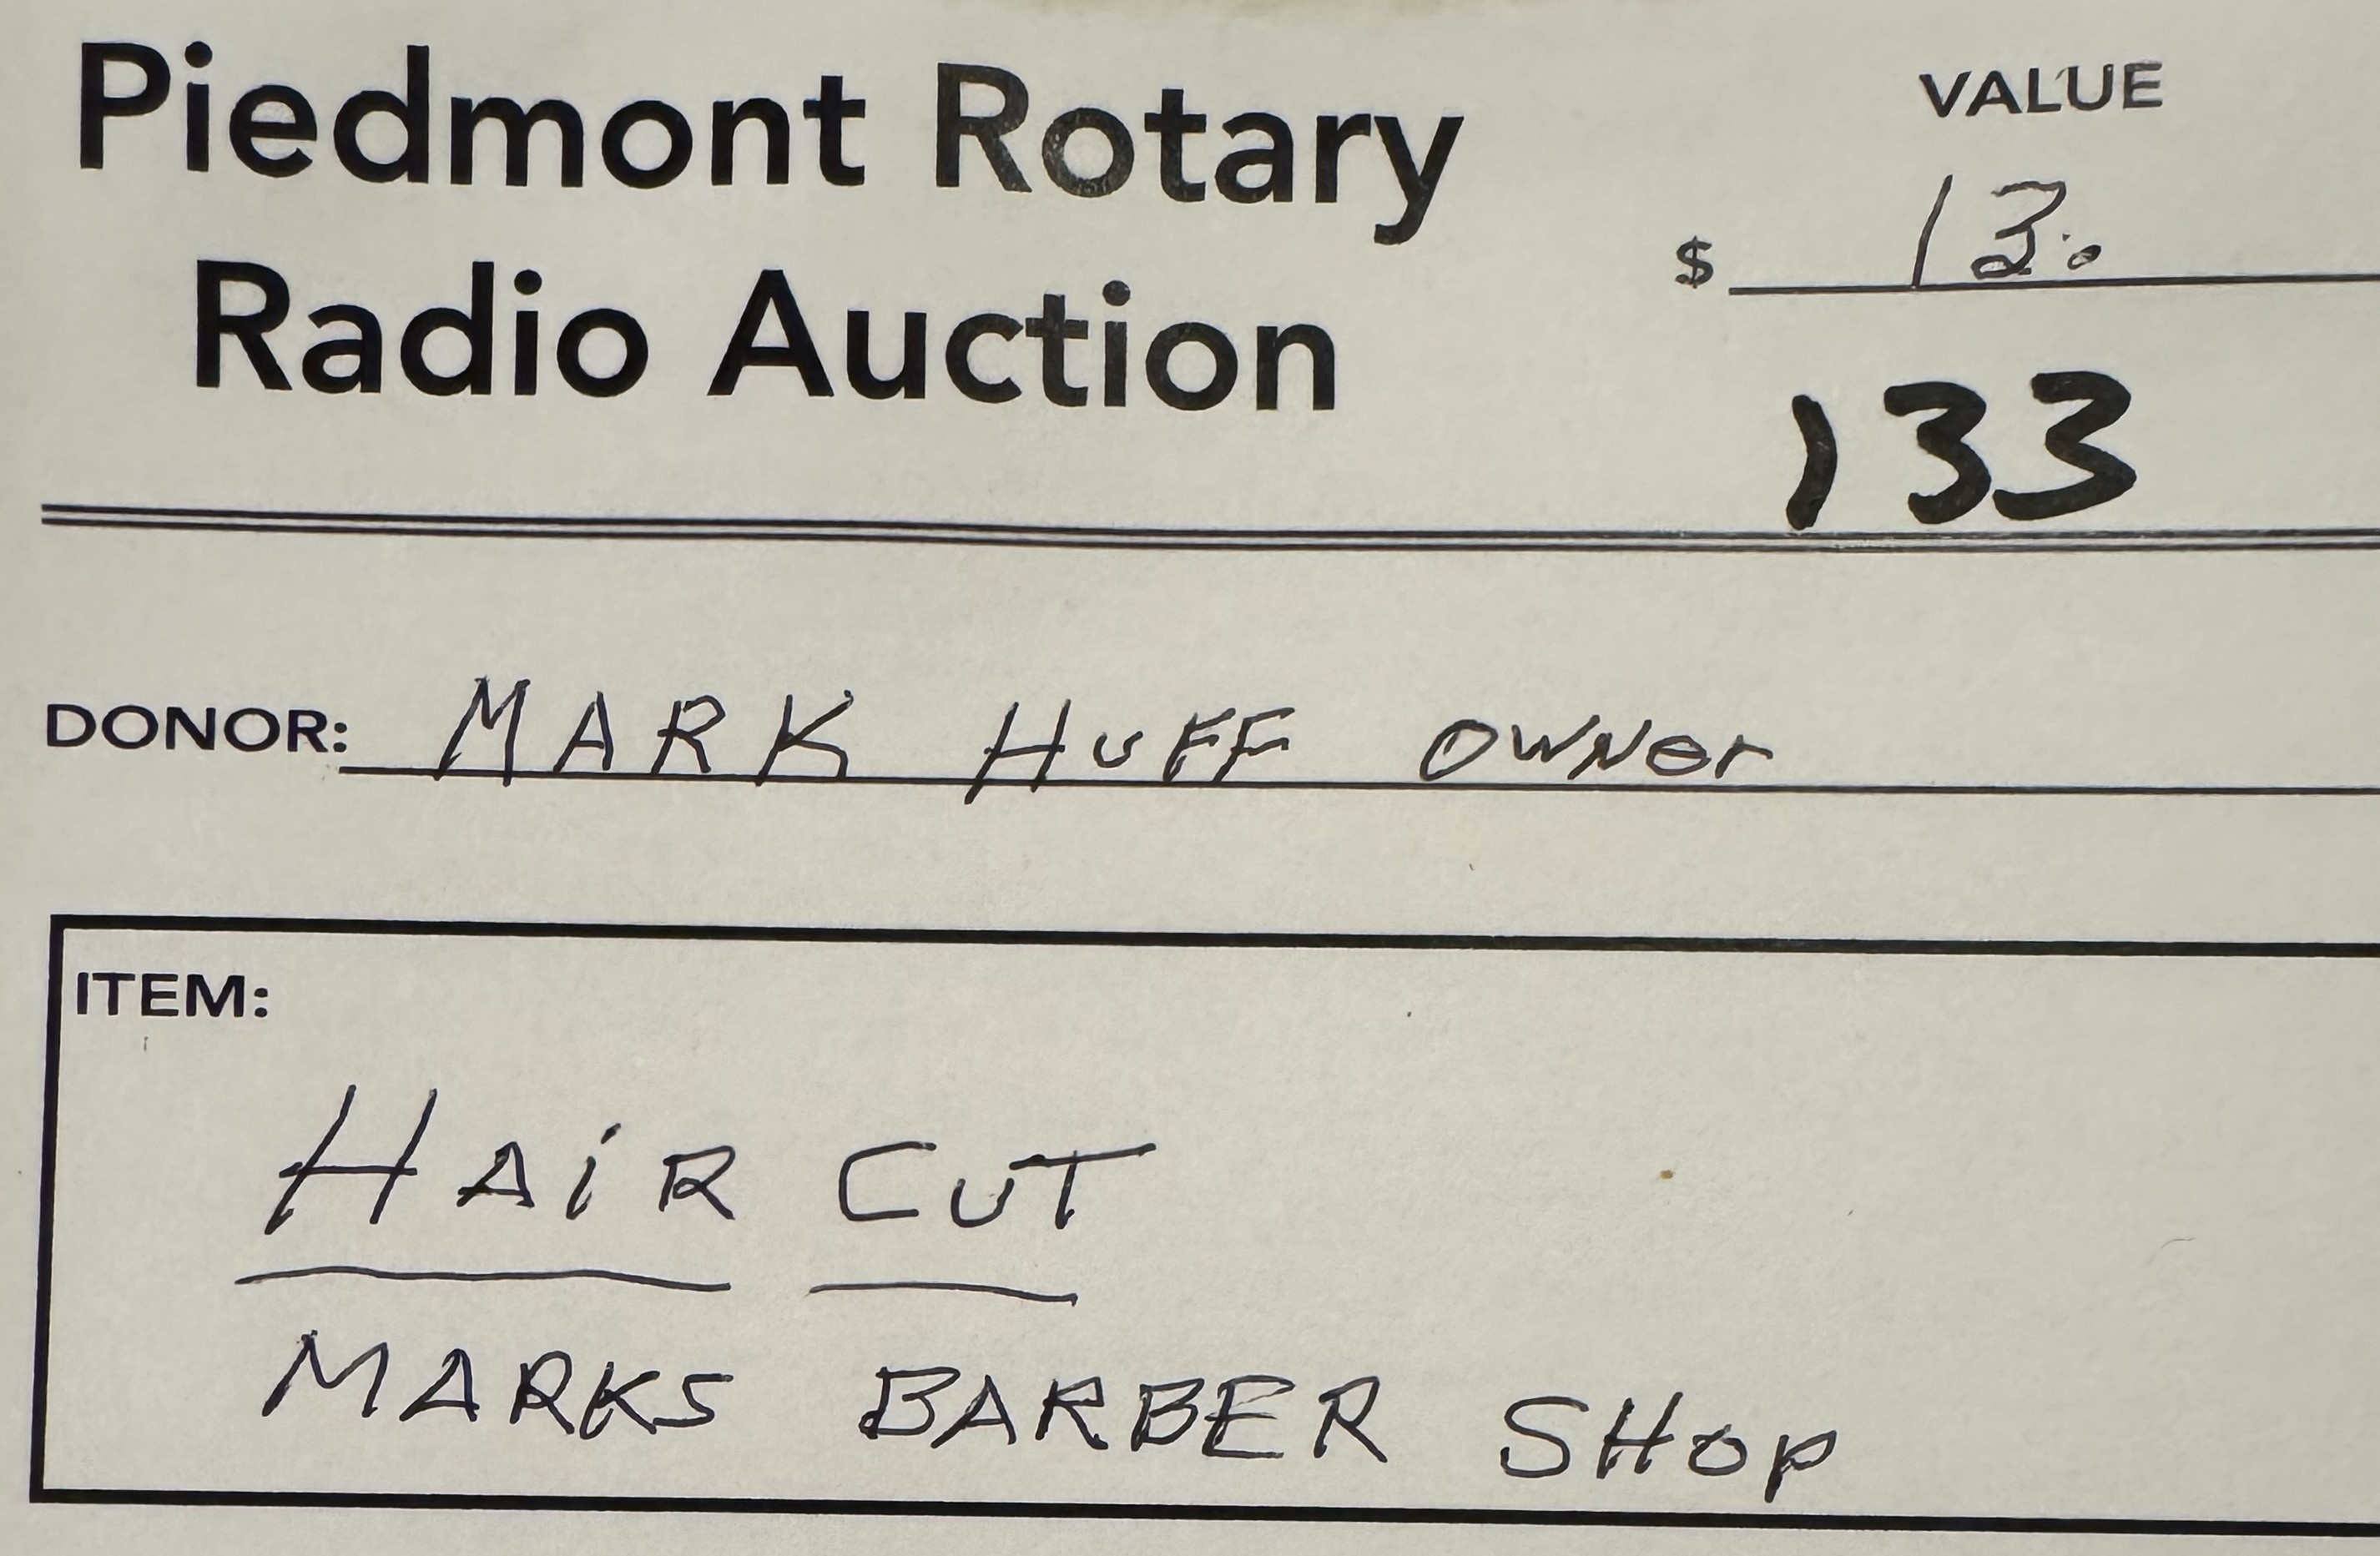 Piedmont Rotary
Radio Auction
VALUE
$ 13.
133
DONOR: MARK HUFF OWNer
ITEM:
HAiR CUT
MARKS BARBER SHOP